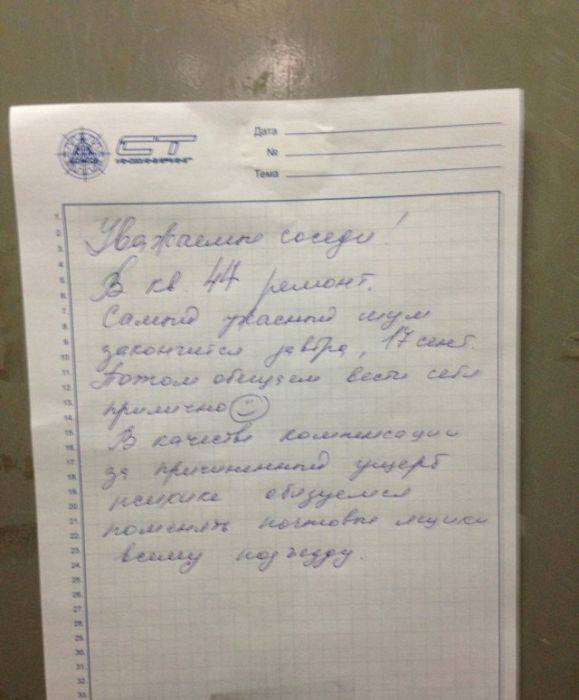 СТ
ИНЖИНИРИНГ
Дата
№
Тема
Уважаемые соседи!
В кв 44 ремонт.
Самый ужасный шум
закончится завтра, 17 сент.
Потом обещаем вести себя
прилично
В качестве компенсации
за причиненный ущерб
психике обязуемся
поменять почтовые ящики
всему подъезду.
1.
2.
3.
4.
5.
6.
7.
8.
9.
10.
11.
12.
13.
14.
15.
16.
17.
18.
19.
20.
21.
22.
23.
24.
25.
26.
27.
28.
29.
30.
31.
32.
33.